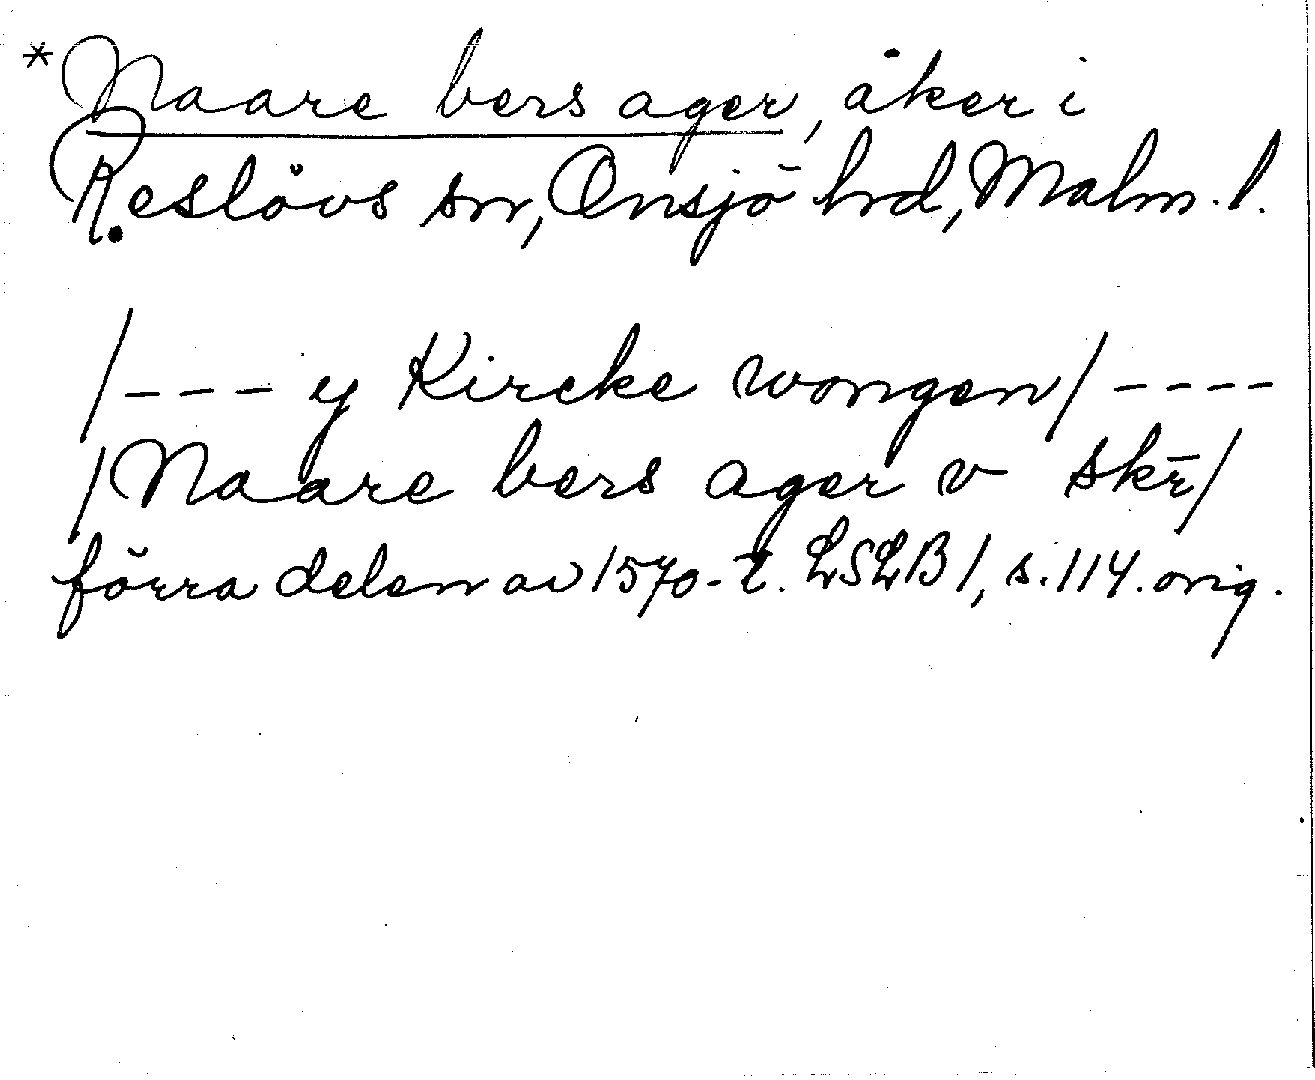 *Naare bers ager, åker i
Reslövs sn, Onsjö hrd, Malm. l.
/--- y Kircke wongen/ ----
/Naare bers ager v skr̄/
förra delen av 1570-t. LSLB 1, s. 114. orig.